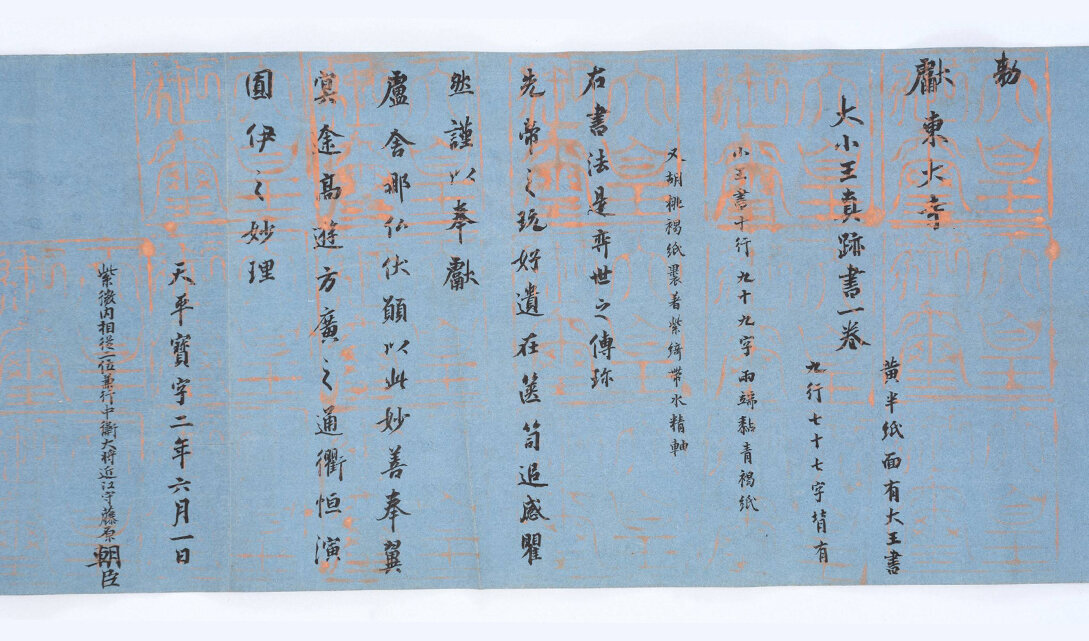 勅
獻東大寺
大小王真跡書一卷
黄半紙面有大王書
九行七十七字背有
小王書十行九十九字兩端黏青褐紙
又胡桃褐紙裹著紫綺帶水精軸
右書法是奕世之傳珎
先帝之玩好遺在篋笥追感瞿
然謹以奉獻
盧舍那仏伏願以此妙善奉翼
冥途高遊方廣之通衢恒演
圓伊之妙理
天平寳字二年六月一日
紫微内相從二位兼行中衞大将近江守藤原朝臣